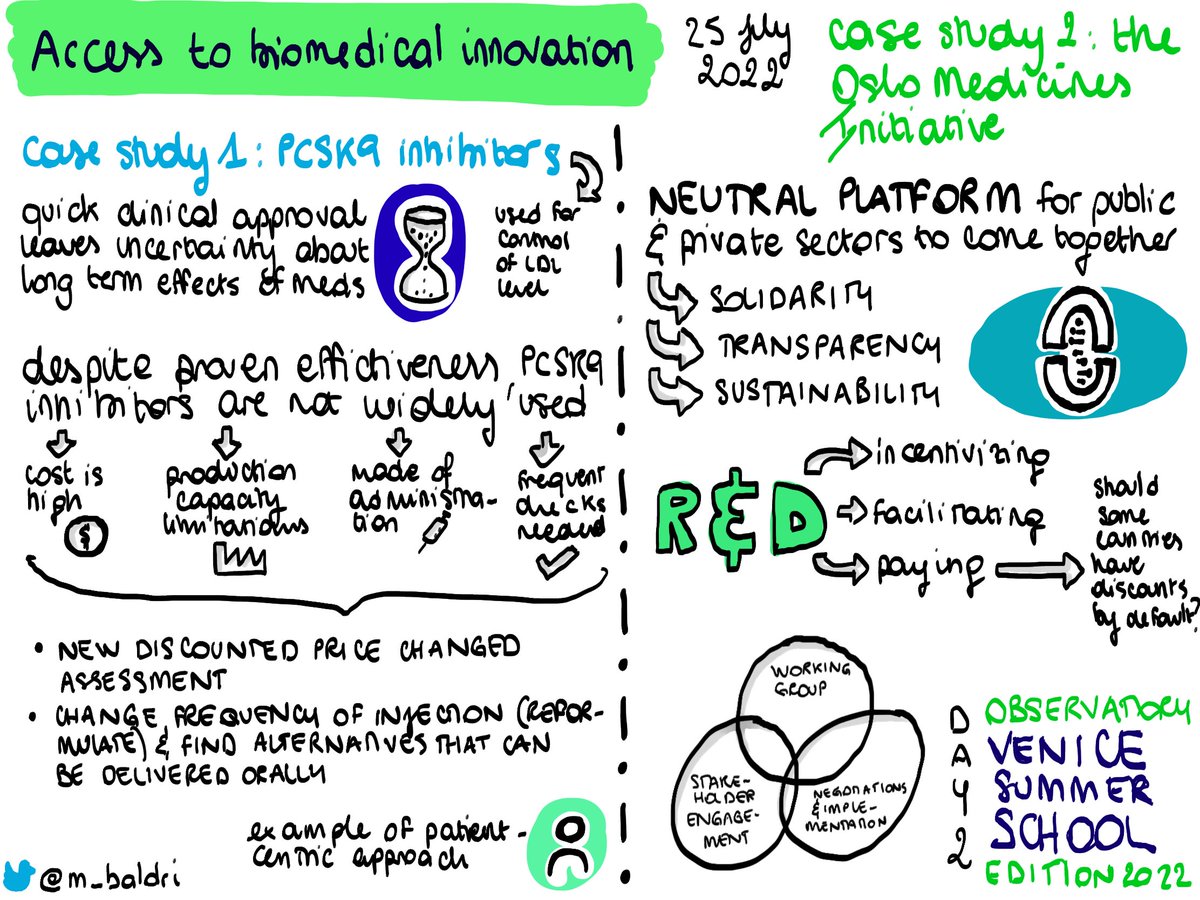 Access to biomedical innovation
25 July
2022
case study 1: PCSK9 inhibitors
quick clinical approval
leaves uncertainity about
long term effects of meds
used for
control
of LDL
level
despite proven effictiveness PCSK9
inhibitors are not widely used
cost is
high
$
production
capacity
limitations
made of
administra-
tion
frequent
checks
needed
• NEW DISCOUNTED PRICE CHANGED
ASSESSMENT
• CHANGE FREQUENCY OF INJECTION (REFOR-
MULATE) & FIND ALTERNATIVES THAT CAN
BE DELIVERED ORALLY
example of patient-
centric approach
@m_baldri
case study 2: the
Oslo Medicines
Initiative
NEUTRAL PLATFORM for public
& private sectors to come together
SOLIDARITY
TRANSPARENCY
SUSTAINABILITY
R&D
incentivizing
facilitating
paying
should
some
countries
have
discounts
by default?
WORKING
GROUP
STAKE-
HOLDER
ENGAGE-
MENT
NEGOTIATIONS
& IMPLE-
MENTATION
DAY 2
OBSERVATORY
VENICE
SUMMER
SCHOOL
EDITION 2022